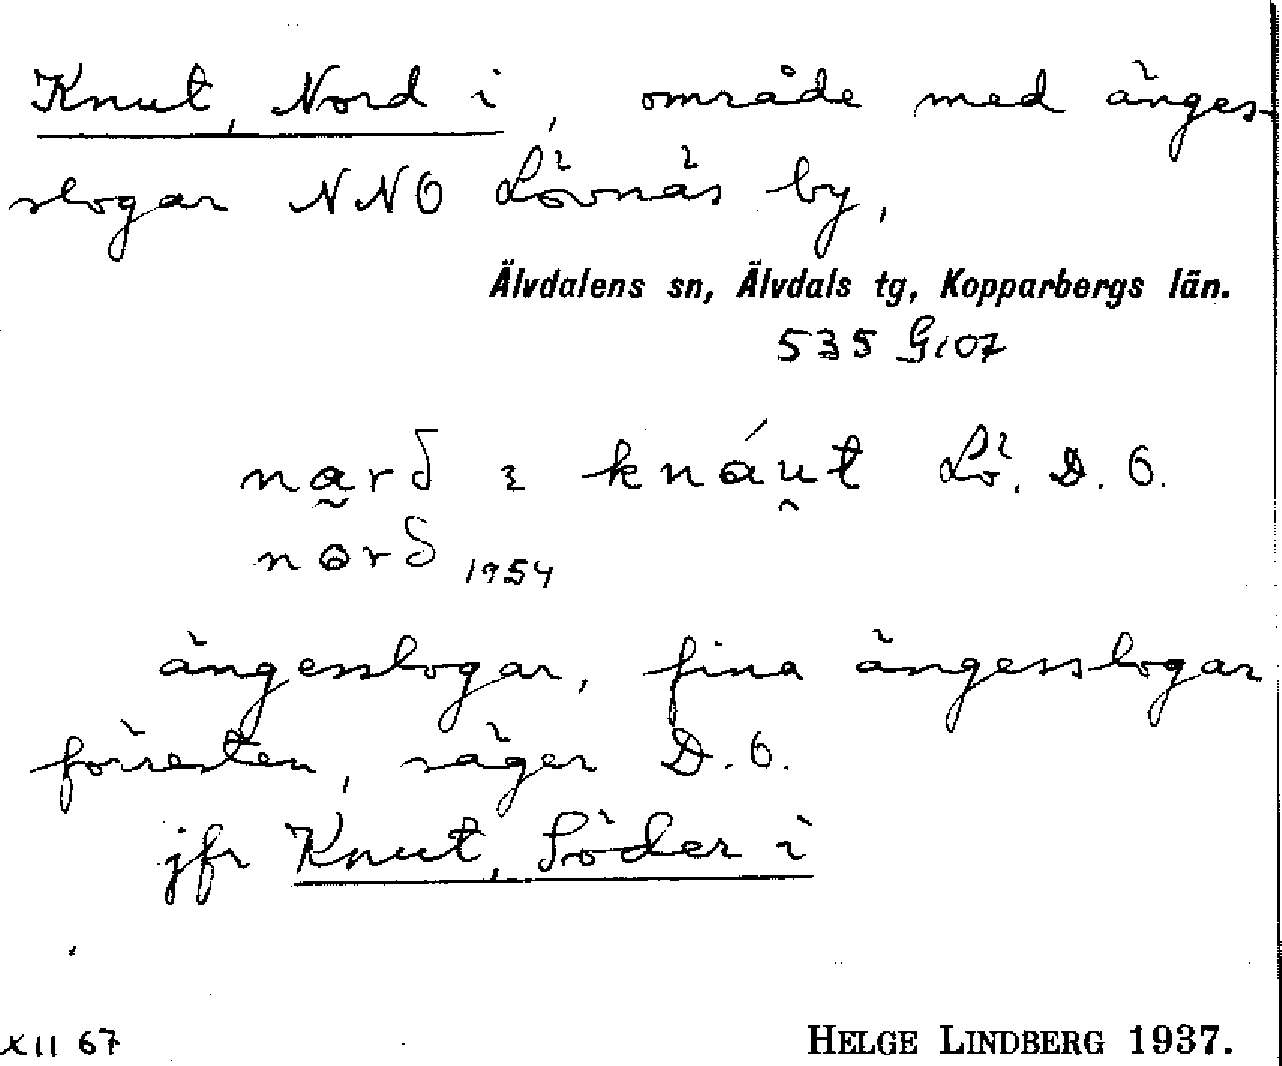 Knut, Nord i, område med änges-
slogar NNO Lövnäs by,
Älvdalens sn, Älvdals tg, Kopparbergs län.
535 G:07
Lö. D. O.
1954
ängesslogar, fina ängesslogar
förresten, säger D. O.
jfr Knut, Söder i
XII 67
HELGE LINDBERG 1937.